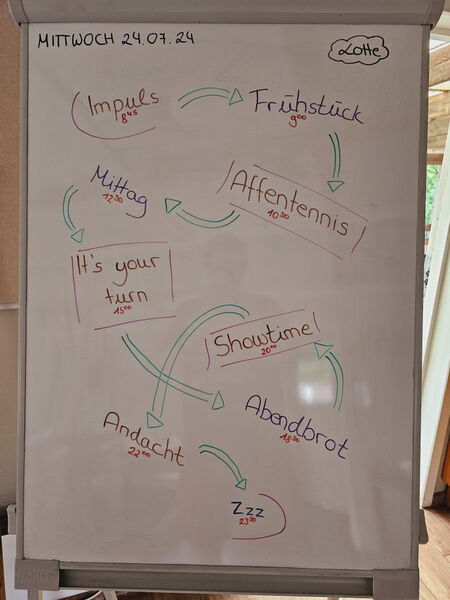 MITTWOCH 24.07.24
Lotte
Impuls
8⁴⁵
Frühstück
9⁰⁰
Affentennis
10³⁰
Mittag
12³⁰
It's your
turn
15⁰⁰
Abendbrot
18³⁰
Showtime
20⁰⁰
Andacht
22⁰⁰
Zzz
23³⁰